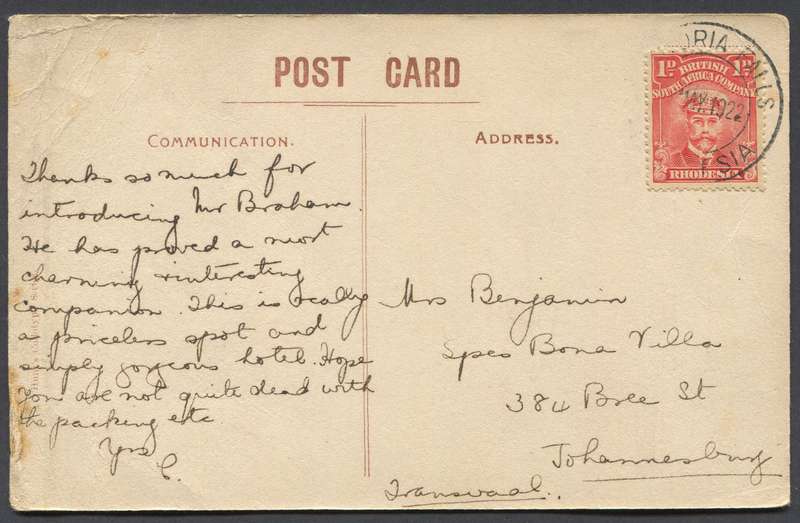 POST CARD
COMMUNICATION.
Thanks so much for
introducing Mr Braham.
He has proved a most
charming & interesting
companion. This is really
a priceless spot and
simply gorgeous hotel. Hope
you are not quite dead with
the packing etc
Yrs
C.
ADDRESS.
Mrs Benjamin
Spes Bona Villa
384 Bree St
Johannesburg
Transvaal.
ORIA FALLS
1922
SIA
1D BRITISH 1D
SOUTH AFRICA COMPANY
RHODESIA